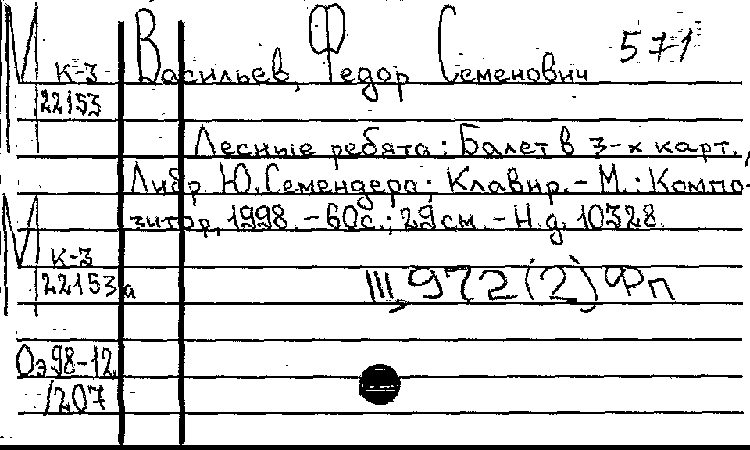 571
К-3 Васильев, Федор Семенович
22153
Лесные ребята: Балет в 3-х карт.,
Либр. Ю. Семендера; Клавир. - М.: Компо-
зитор, 1998. - 60с.; 29см. - Н.д. 10328.
К-3
22153а III, 972(2) Фп
Оэ98-12
/207